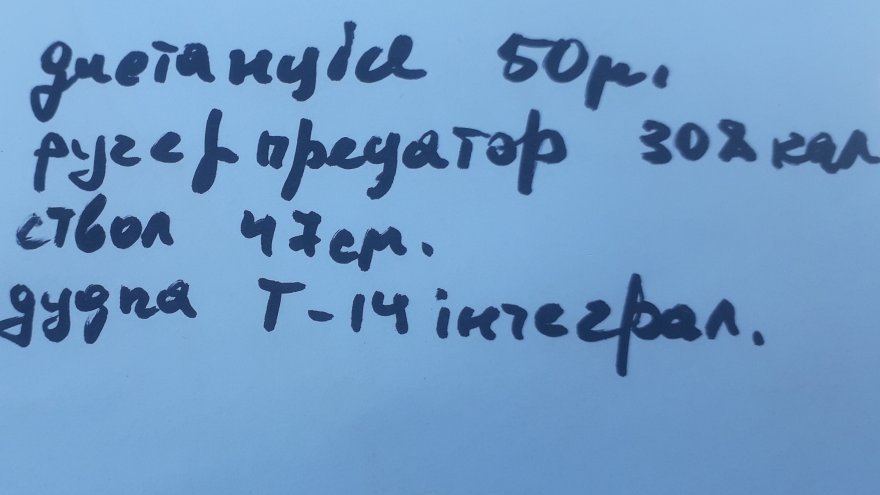 дистанція 50м.
ругер предатор 308 кал
ствол 47см.
дудка Т-14 інтеграл.